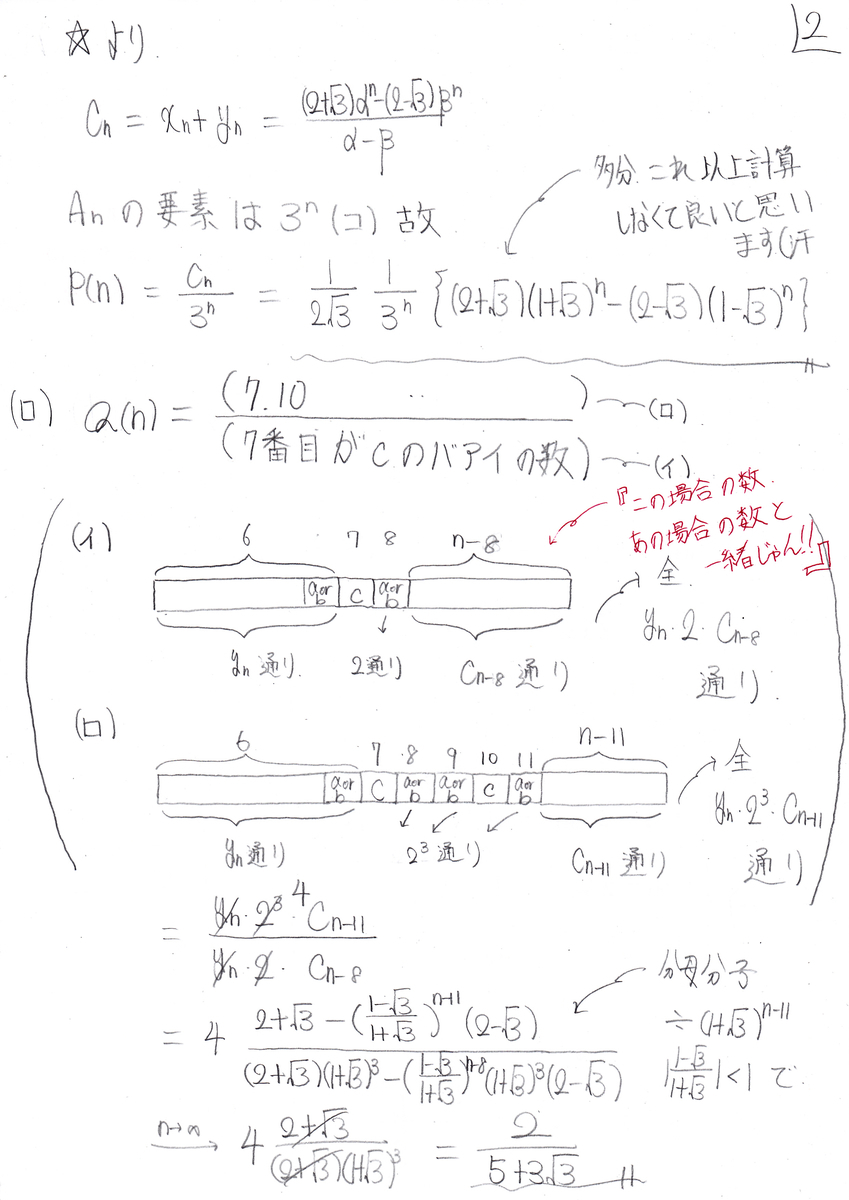 2
☆より
Cn = xn + yn = ((2+√3)α^n − (2−√3)β^n)/(α−β)
多分.これ以上計算
しなくて良いと思い
ます(汗
Anの要素は3^n(コ)故
P(n) = Cn/3^n = 1/(2√3) 1/3^n {(2+√3)(1+√3)^n − (2−√3)(1−√3)^n}
(ロ) Q(n) = (7.10 ‥ )/(7番目がCのバアイの数)
(ロ)
(イ)
『この場合の数.
あの場合の数と
一緒じゃん!!』
(イ)
6 7 8 n−8
a or b C a or b
yn通り. 2通り Cn−8通り
全
yn・2・Cn−8
通り.
(ロ)
6 7 8 9 10 11 n−11
a or b C a or b a or b C a or b
yn通り 2^3通り Cn−11通り
全
yn・2^3・Cn−11
通り
= (yn・2^3 4 Cn−11)/(yn・2・Cn−8)
= 4 (2+√3 − ((1−√3)/(1+√3))^{n−11} (2−√3))/((2+√3)(1+√3)^3 − ((1−√3)/(1+√3))^{n−8} (1+√3)^3 (2−√3))
分母分子
÷(1+√3)^{n−11}
|(1−√3)/(1+√3)|<1 で
n→∞ → 4 (2+√3)/((2+√3)(1+√3)^3) = 2/(5+3√3)